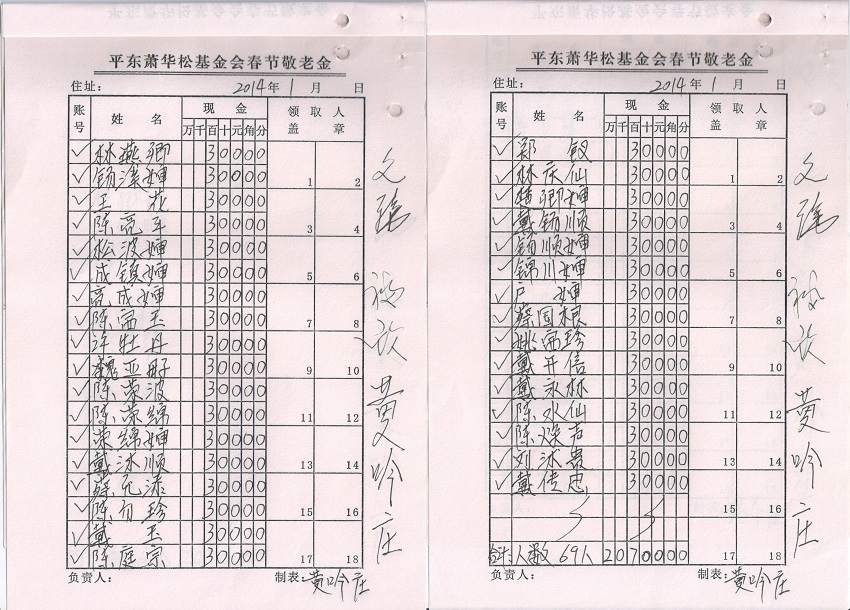 平东萧华松基金会春节敬老金
住址： 2014年1月 日
账号 姓名 现金 领取人盖章
万千百十元角分
✓ 林燕卿 30000
✓ 30000 1 2
✓ 王花 30000
✓ 陈亮平 30000 3 4
✓ 松波婶 30000
✓ 成镇婶 30000 5 6
✓ 亮成婶 30000
✓ 陈富玉 30000 7 8
✓ 许牡丹 30000
✓ 魏亚 30000 9 10
✓ 陈荣波 30000
✓ 陈荣锦 30000 11 12
✓ 荣锦婶 30000
✓ 戴沐顺 30000 13 14
✓ 30000
✓ 陈自珍 30000 15 16
✓ 戴玉 30000
✓ 陈庭宗 30000 17 18
负责人： 制表：黄吟庄
黄吟庄
平东萧华松基金会春节敬老金
住址： 2014年1月 日
账号 姓名 现金 领取人盖章
万千百十元角分
✓ 郑钗 30000
✓ 林庆仙 30000 1 2
✓ 楚卿婶 30000
✓ 戴锡顺 30000 3 4
✓ 锡顺婶 30000
✓ 锦川婶 30000 5 6
✓ 婶 30000
✓ 蔡国根 30000 7 8
✓ 姚富珍 30000
✓ 戴开信 30000 9 10
✓ 戴永林 30000
✓ 陈水仙 30000 11 12
✓ 陈焕声 30000
✓ 刘沐贵 30000 13 14
✓ 戴佳忠 30000
15 16
合计：人数 69人 2070000 17 18
负责人： 制表：黄吟庄
黄吟庄